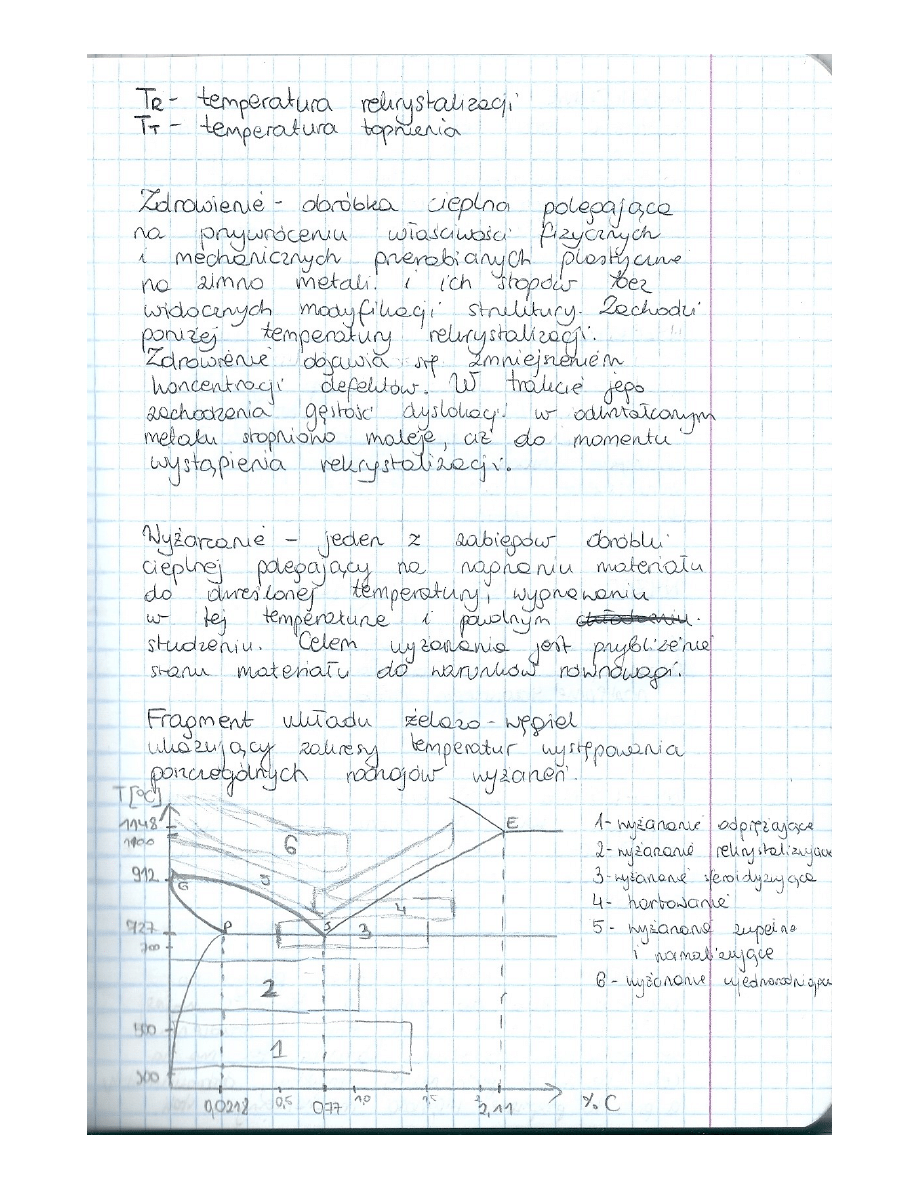 TR - temperatura rekrystalizacji
TT - temperatura topnienia
Zdrowienie - obróbka cieplna polegająca
na przywróceniu właściwości fizycznych
i mechanicznych przerabianych plastycznie
na zimno metali i ich stopów bez
widocznych modyfikacji struktury. Zachodzi
poniżej temperatury rekrystalizacji.
Zdrowienie objawia się zmniejszeniem
koncentracji defektów. W trakcie jego
zachodzenia gęstość dyslokacji w odkształconym
metalu stopniowo maleje, aż do momentu
wystąpienia rekrystalizacji.
Wyżarzanie - jeden z zabiegów obróbki
cieplnej polegający na nagrzaniu materiału
do określonej temperatury, wygrzewaniu
w tej temperaturze i powolnym
studzeniu. Celem wyżarzania jest przybliżenie
stanu materiału do warunków równowagi.
Fragment układu żelazo-węgiel
ukazujący zakresy temperatur występowania
poszczególnych rodzajów wyżarzeń.
T[°C]
1148
1100
912
727
700
500
300
G
P
S
E
6
5
4
3
2
1
0,0218 0,5 0,77 1,0 1,5 2 2,11 % C
1- wyżarzanie odprężające
2- wyżarzanie rekrystalizujące
3- wyżarzanie sferoidyzujące
4- hartowanie
5- wyżarzanie zupełne
i normalizujące
6- wyżarzanie ujednorodniające